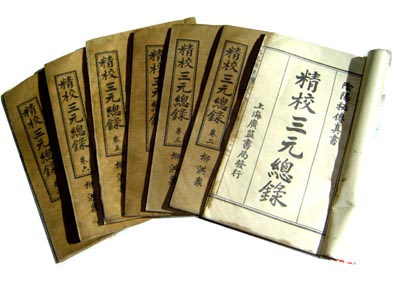 陰陽秘傳真書
精校三元總錄
上海廣益書局發行
精校三元總錄
卷二
柳洪泉
精校三元總錄
卷三
柳洪泉
精校三元總錄
卷五
精校三元總錄
卷六
精校三元總錄